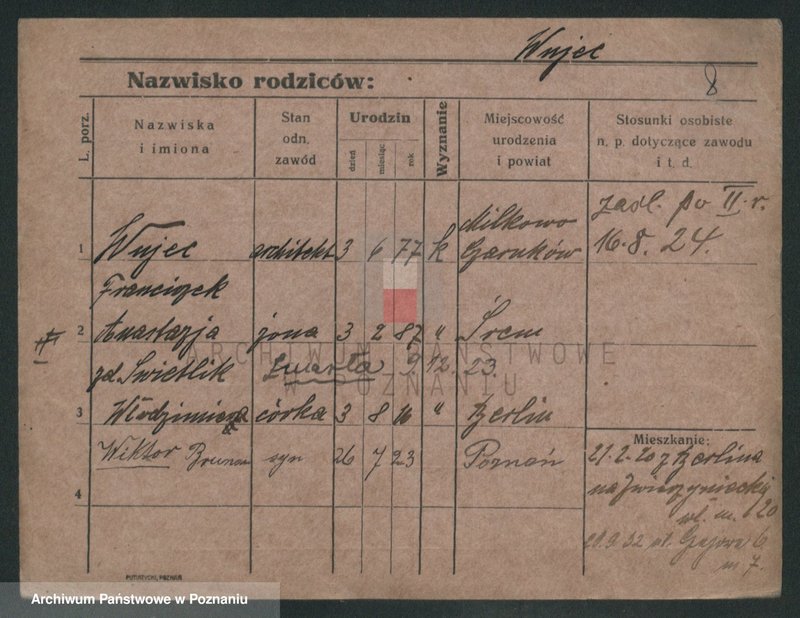 Wujec
8
Nazwisko rodziców:
L. porz.
Nazwiska
i imiona
Stan
odn.
zawód
Urodzin
dzień
miesiąc
rok
Wyznanie
Miejscowość
urodzenia
i powiat
Stosunki osobiste
n. p. dotyczące zawodu
i t. d.
1 Wujec architekt 3 6 77 k Milkowo
Czarnków
zadl. po II. r.
16.8.24.
Franciszek
2 Anastazja żona 3 2 87 " Śrem
zd. Swietlik zmarła 9.12.23.
3 Włodzimiera córka 3 8 10 " Berlin
Wiktor Brunon syn 26 7 23 Poznań
4
Mieszkanie:
21.2.20 z Berlina
na Zwierzyniecką
20
ul. Gajowa 6
m 7.
PUTIATYCKI, POZNAŃ
ARCHIWUM PAŃSTWOWE
W POZNANIU
Archiwum Państwowe w Poznaniu